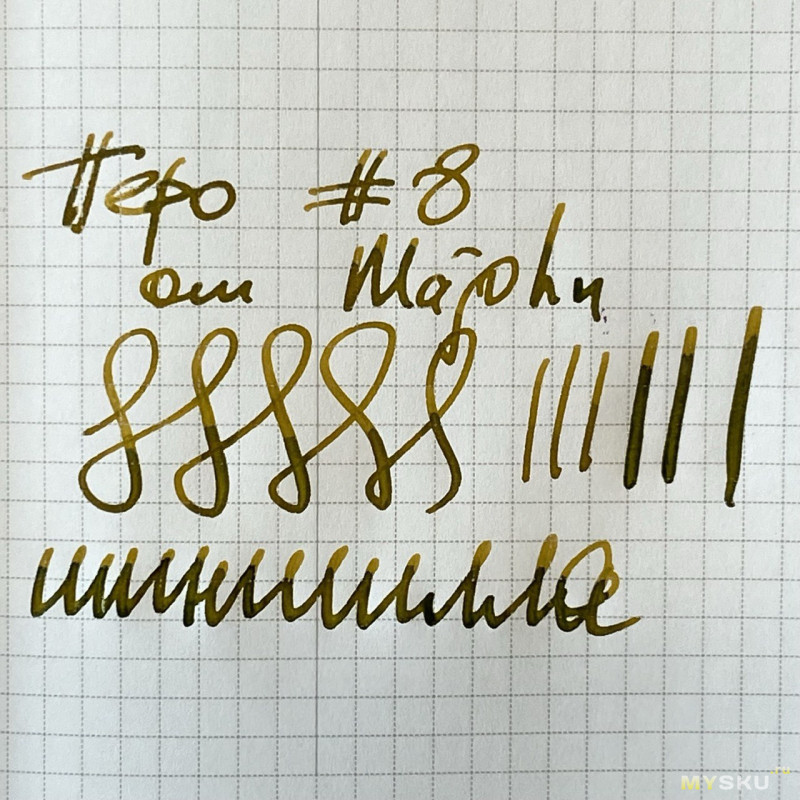 Перо #8
от Majohn
MYSKU